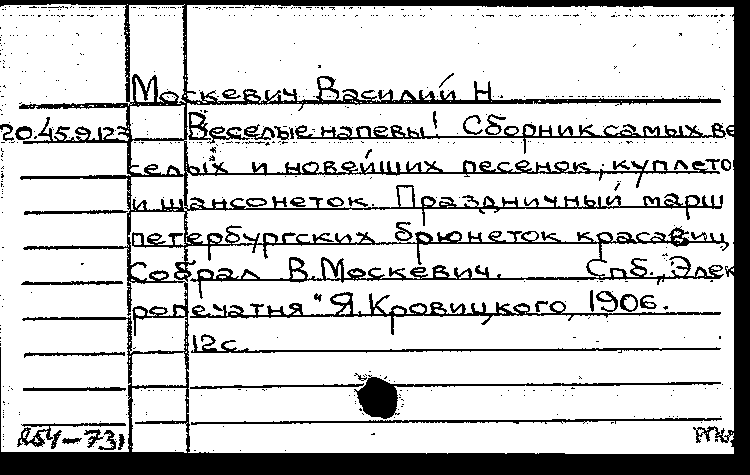 Москевич, Василий Н.
20.45.9.123 Веселые напевы! Сборник самых ве
селых и новейших песенок, куплето
и шансонеток. Праздничный марш
петербургских брюнеток красавиц.
Собрал В. Москевич. Спб., Элек
ропечатня "Я. Кровицкого, 1906.
12с.
254-731